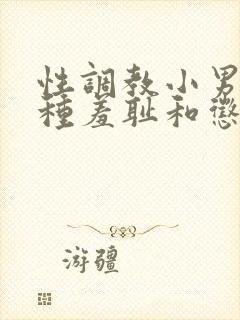 性調教小男
種羞耻和懲
游疆